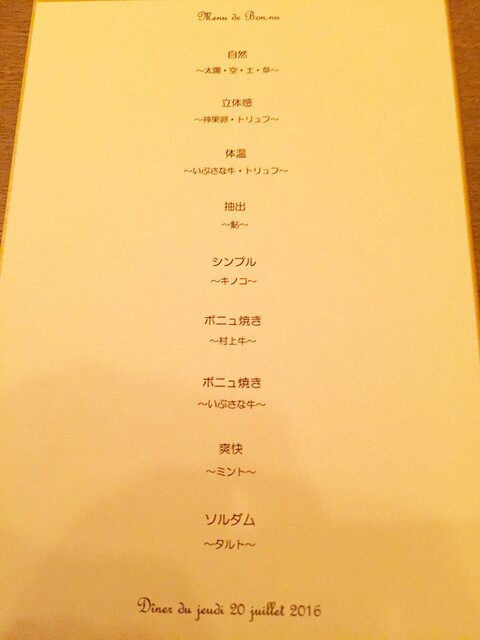 Menu de Bon.nu
自然
～太陽・空・土・草～
立体感
～神果卵・トリュフ～
体温
～いぶさな牛・トリュフ～
抽出
～鮎～
シンプル
～キノコ～
ボニュ焼き
～村上牛～
ボニュ焼き
～いぶさな牛～
爽快
～ミント～
ソルダム
～タルト～
Dîner du jeudi 20 juillet 2016